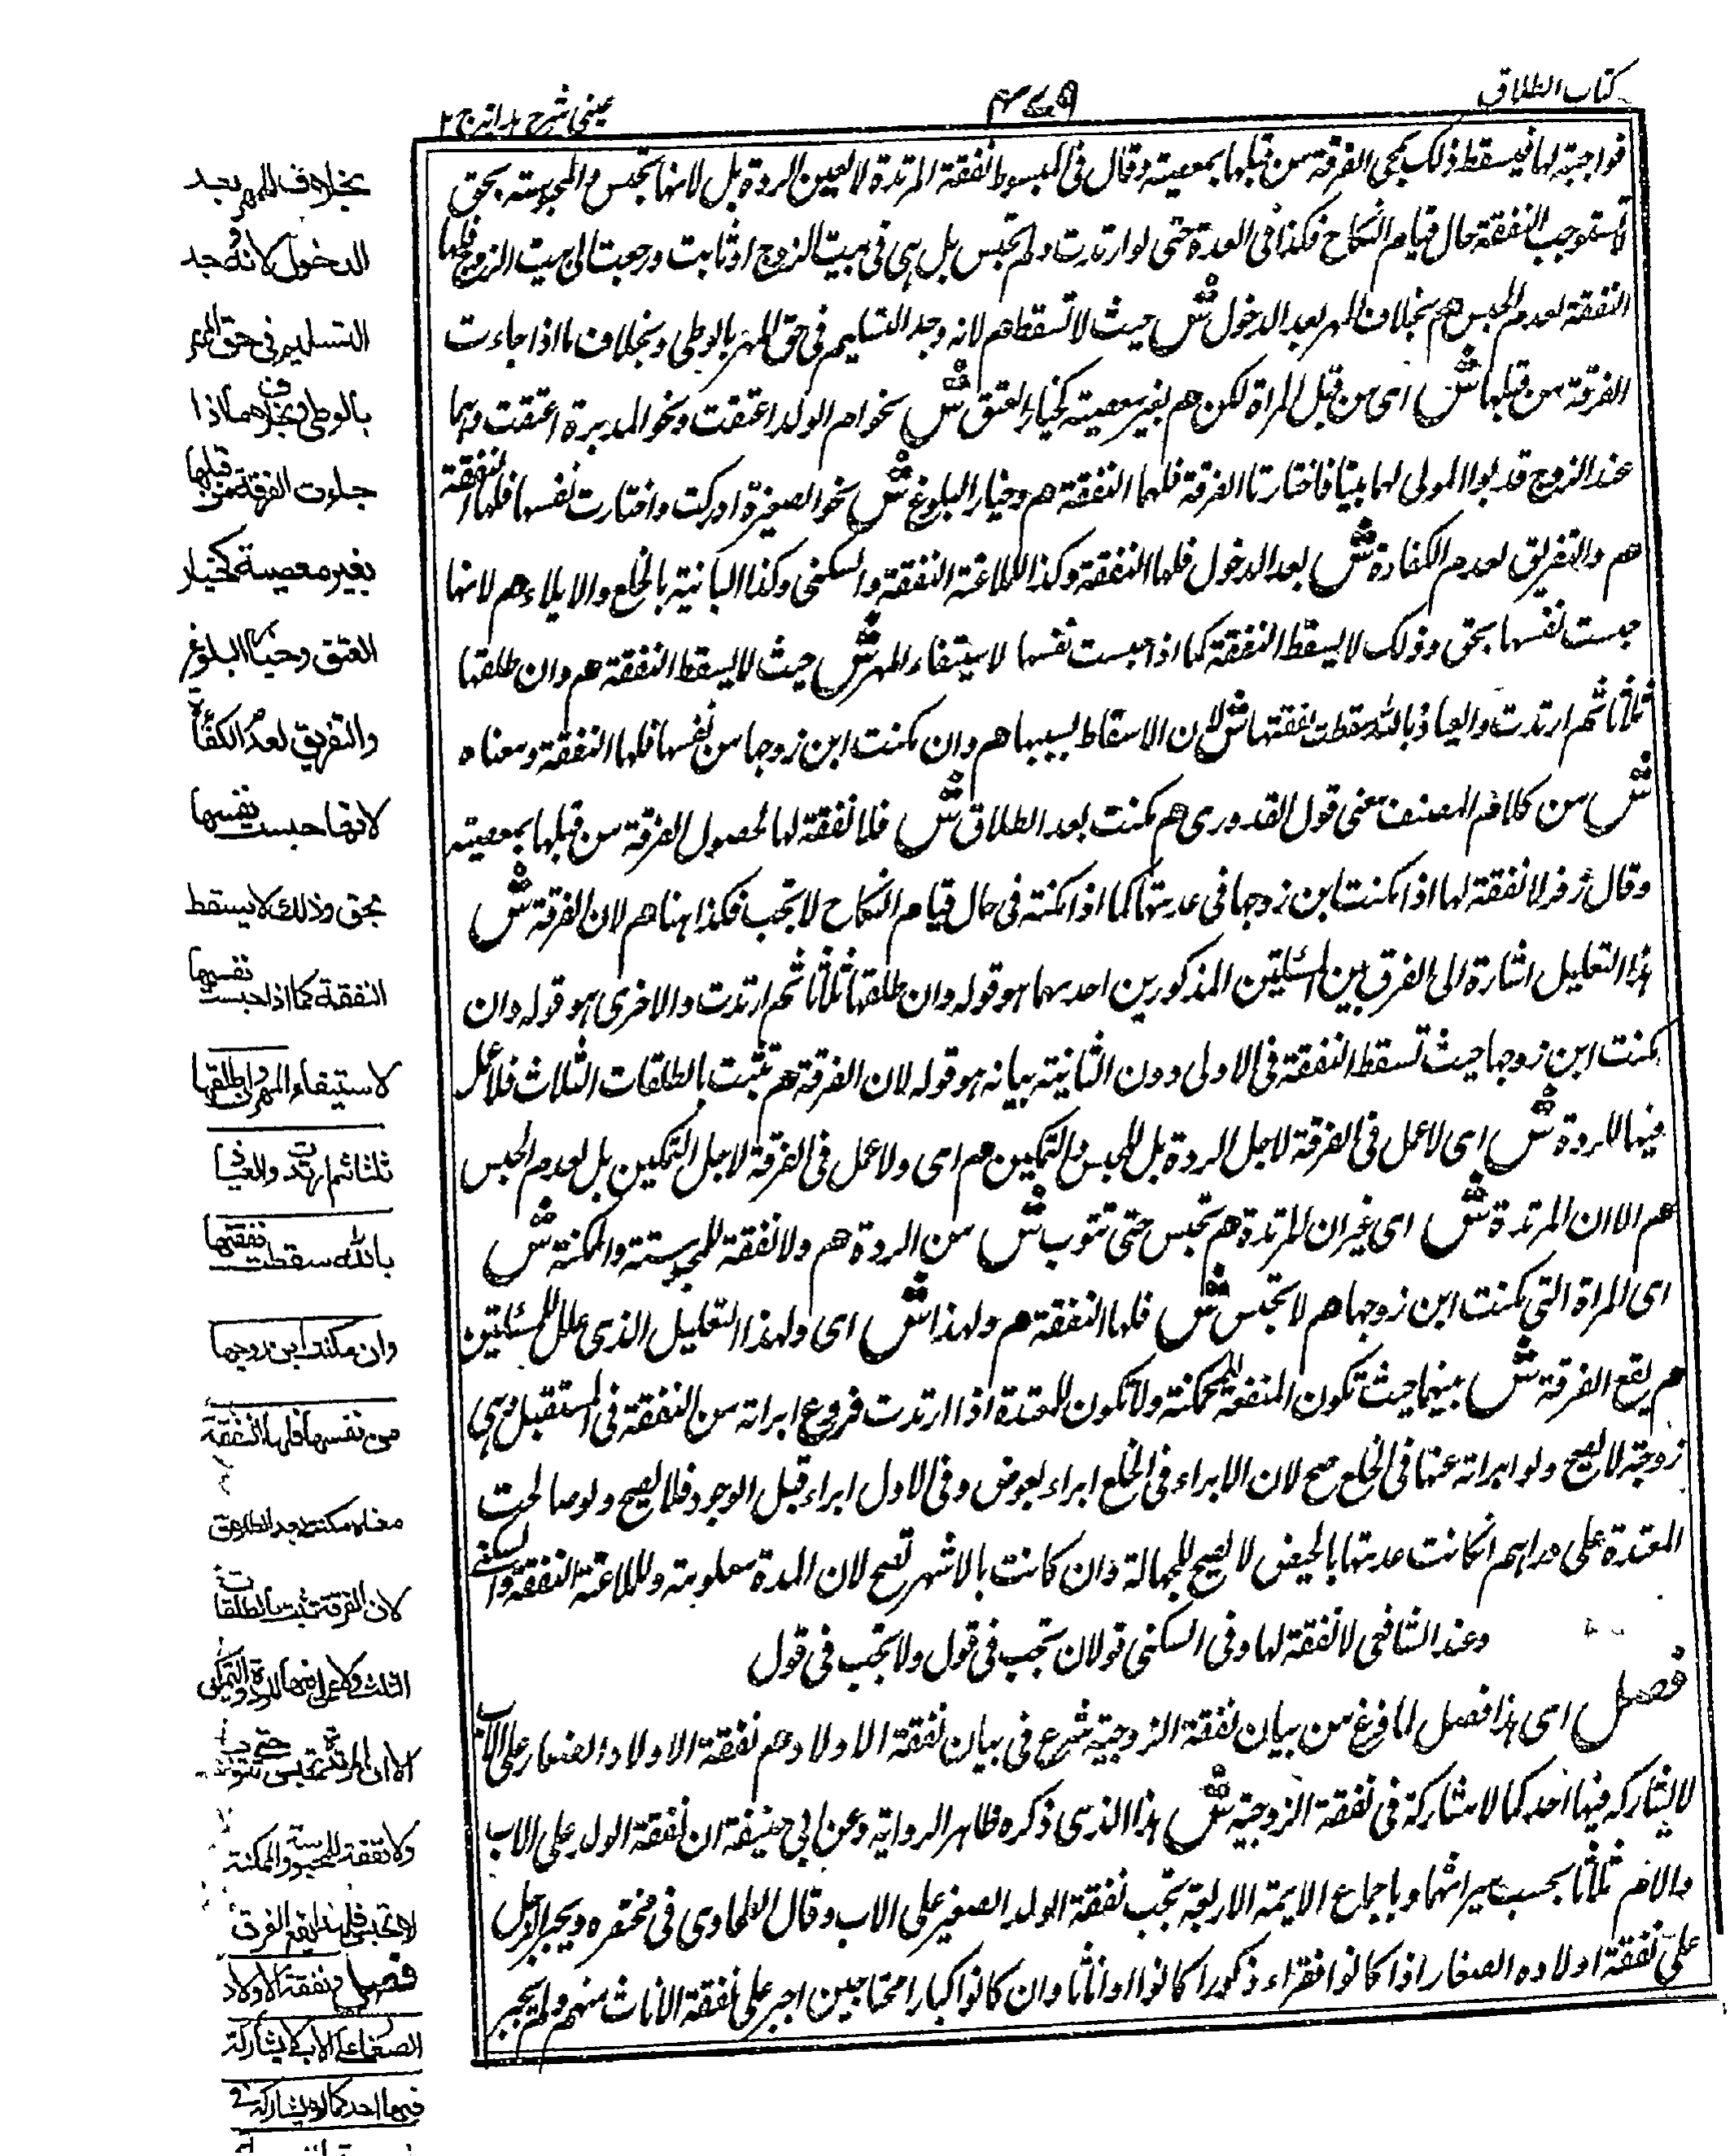 كتاب الطلاق
عينى شرح هدايه ج ٢
فواجبة لها فيسقط ذلك بمجئ الفرقة من قبلها بمعصية وقال فى المبسوط نفقة المرتدة لا لعين الردة بل لانها تحبس والمحبوسة بحق
لا تستوجب النفقة حال قيام النكاح فكذا فى العدة حتى لو ارتدت ولم تحبس بل هى فى بيت الزوج او ثابت ورجعت الى بيت الزوج فلها
النفقة لعدم الحبس هم بخلاف المهر بعد الدخول ش حيث لا تسقط هم لانه وجد التسليم فى حق المهر بالوطى وبخلاف ما اذا جاءت
الفرقة من قبلها ش اى من قبل المراة لكن هم بغير معصية كخيار العتق ش نحو ام الولد اعتقت ونحو المدبرة اعتقت وهما
عند الزوج قد بوا المولى لهما بيتا فاختارتا الفرقة فلهما النفقة هم وخيار البلوغ ش نحو الصغيرة ادركت واختارت نفسها فلها النفقة
هم والتفريق لعدم الكفاءة ش بعد الدخول فلها النفقة وكذا الملاعنة النفقة والسكنى وكذا البانية بالخلع والايلاء هم لانها
حبست نفسها بحق وذلك لا يسقط النفقة كما اذا حبست نفسها لاستيفاء المهر ش حيث لا يسقط النفقة هم وان طلقها
ثلاثا ثم ارتدت والعياذ بالله سقطت نفقتها ش لان الاسقاط بسببها هم وان مكنت ابن زوجها من نفسها فلها النفقة ومعناه
ش من كلام المصنف معنى قول القدورى هم مكنت بعد الطلاق ش فلا نفقة لها لحصول الفرقة من قبلها بمعصية
وقال زفر لا نفقة لها اذا مكنت ابن زوجها فى عدتها كما اذا مكنته فى حال قيام النكاح لا تجب فكذا هنا هم لان الفرقة ش
هذا التعليل اشارة الى الفرق بين المسئلتين المذكورين احدهما هو قوله وان طلقها ثلاثا ثم ارتدت والاخرى هو قوله وان
مكنت ابن زوجها حيث تسقط النفقة فى الاولى دون الثانية بيانه هو قوله لان الفرقة هم تثبت بالطلقات الثلاث فلا عمل
فيها للردة ش اى لا عمل فى الفرقة لاجل الردة بل للحبس والتمكين هم اى ولا عمل فى الفرقة لاجل التمكين بل لعدم الحبس
هم الا ان المرتدة ش اى غير ان المرتدة هم تحبس حتى تتوب ش من الردة هم ولا نفقة للمحبوسة والممكنة ش
اى المراة التى مكنت ابن زوجها هم لا تحبس ش فلها النفقة هم ولهذا ش اى ولهذا التعليل الذى علل للمسئلتين
هم يقع الفرقة ش بينهما حيث تكون المنفقة للممكنة ولا تكون للمعتدة اذا ارتدت فروع ابراته من النفقة فى المستقبل وهى
زوجة لا يصح ولو ابراته عنها فى الخلع صح لان الابراء فى الخلع ابراء بعوض وفى الاول ابراء قبل الوجود فلا يصح ولو صالحت
المعتدة على دراهم ان كانت عدتها بالحيض لا يصح للجهالة وان كانت بالاشهر تصح لان المدة معلومة وللملاعنة النفقة والسكنى
وعند الشافعى لا نفقة لها وفى السكنى قولان تجب فى قول ولا تجب فى قول
فصل اى هذا فصل لما فرغ من بيان نفقة الزوجية شرع فى بيان نفقة الاولاد هم نفقة الاولاد الصغار على الاب
لا يشاركه فيها احد كما لا مشاركة فى نفقة الزوجية ش هذا الذى ذكره ظاهر الرواية وعن ابى حنيفة ان نفقة الولد على الاب
والام ثلاثا بحسب ميراثهما وباجماع الايمة الاربعة تجب نفقة الولد الصغير على الاب وقال الطحاوى فى مختصره ويجبر الرجل
على نفقة اولاده الصغار اذا كانوا فقراء ذكورا كانوا او اناثا وان كانوا كبارا محتاجين اجبر على نفقة الاناث منهم ولم يجبر
بخلاف المهر بعد
الدخول لانه وجد
التسليم فى حق المهر
بالوطى وبخلاف ما اذا
جاءت الفرقة من قبلها
بغير معصية كخيار
العتق وخيار البلوغ
والتفريق لعدم الكفاءة
لانها حبست نفسها
بحق وذلك لا يسقط
النفقة كما اذا حبست نفسها
لاستيفاء المهر وان طلقها
ثلثا ثم ارتدت والعياذ
بالله سقطت نفقتها
وان مكنت ابن زوجها
من نفسها فلها النفقة
معناه مكنت بعد الطلاق
لان الفرقة تثبت بالطلقات
الثلث ولا عمل فيها للردة والتمكين
الا ان المرتدة تحبس حتى تتوب
ولا نفقة للمحبوسة والممكنة
لا تحبس فلهذا يقع الفرق
فصل ونفقة الاولاد
الصغار على الاب لا يشاركه
فيها احد كما لا يشاركه فى